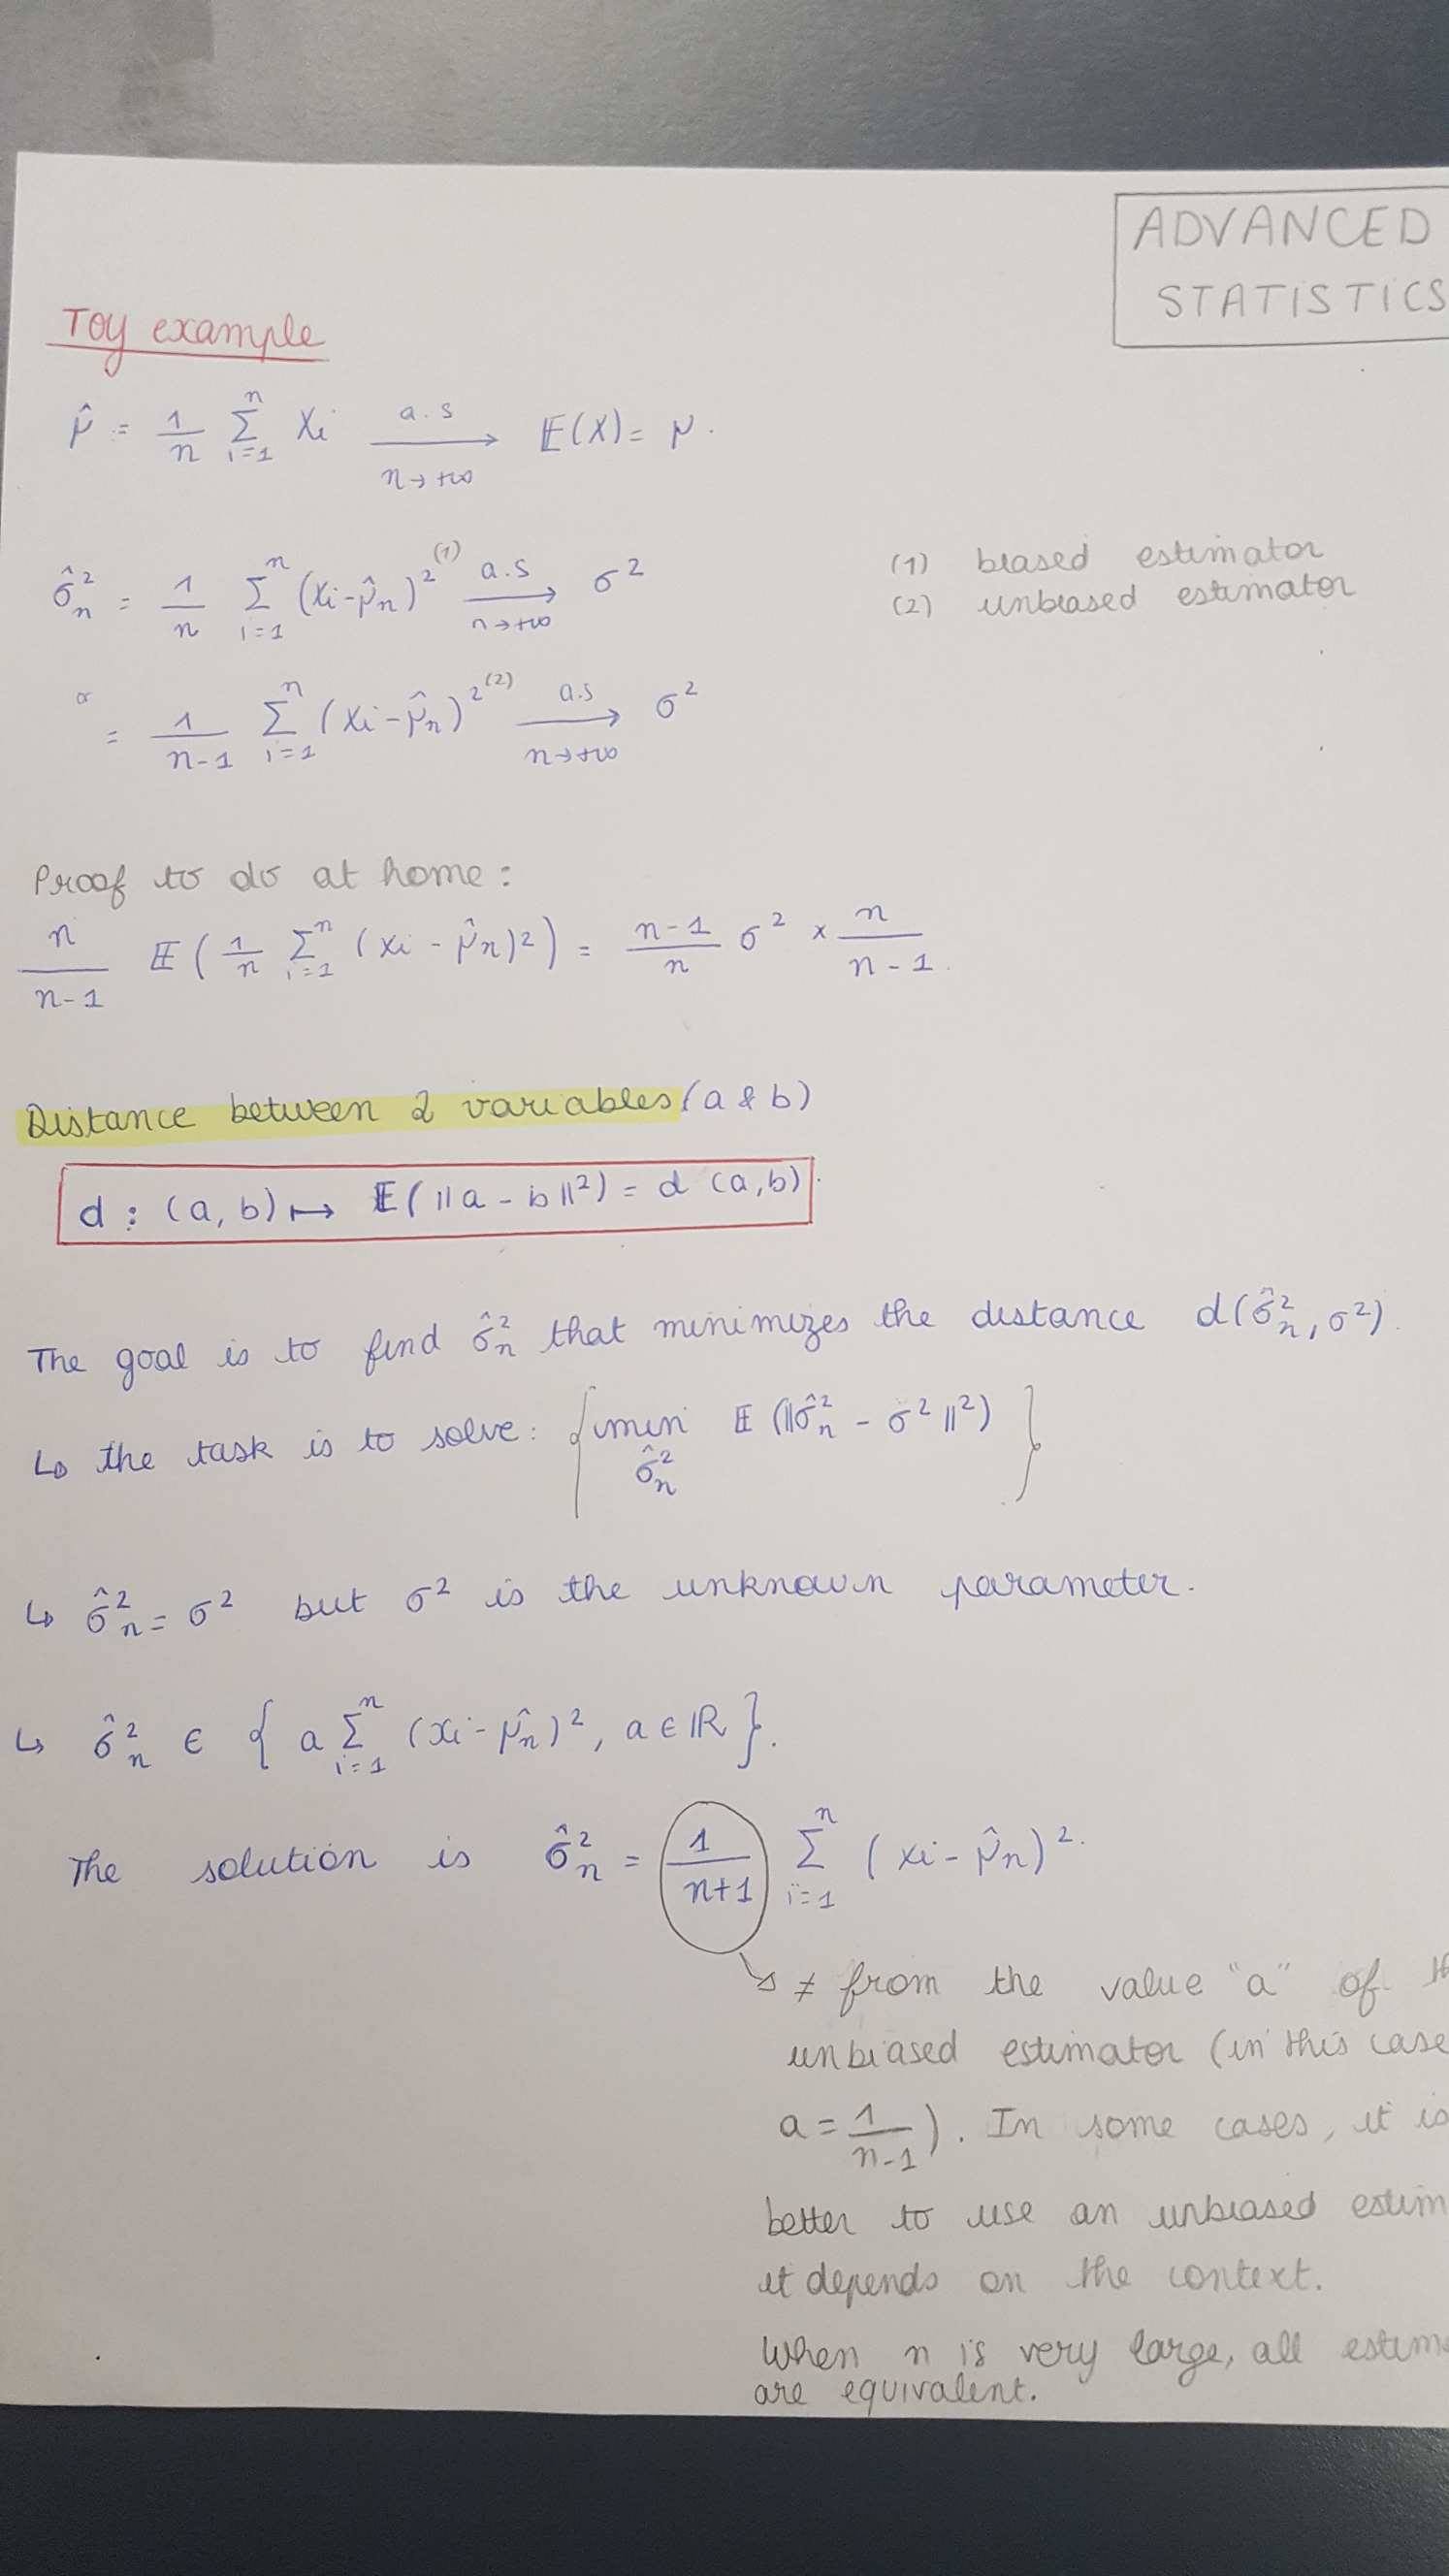 ADVANCED
STATISTICS
Toy example
μ̂ = 1/n Σ_{i=1}^{n} Xi —a.s→_{n→+∞} 𝔼(X) = μ.
σ̂²_n = 1/n Σ_{i=1}^{n} (Xi - μ̂n)² ⁽¹⁾ —a.s→_{n→+∞} σ²
(1) biased estimator
(2) unbiased estimator
or = 1/(n-1) Σ_{i=1}^{n} (Xi - μ̂n)² ⁽²⁾ —a.s→_{n→+∞} σ²
Proof to do at home :
n/(n-1) 𝔼( 1/n Σ_{i=1}^{n} (xi - μ̂n)² ) = (n-1)/n σ² × n/(n-1).
Distance between 2 variables (a & b)
d : (a, b) ↦ 𝔼(||a - b||²) = d (a,b).
The goal is to find σ̂²_n that minimizes the distance d(σ̂²_n, σ²).
↳ the task is to solve : { min_{σ̂²_n} 𝔼(||σ̂²_n - σ²||²) }
↳ σ̂²_n = σ² but σ² is the unknown parameter.
↳ σ̂²_n ∈ { a Σ_{i=1}^{n} (xi - μ̂n)², a ∈ ℝ }.
The solution is σ̂²_n = 1/(n+1) Σ_{i=1}^{n} (xi - μ̂n)².
↳ ≠ from the value "a" of
unbiased estimator (in this case
a = 1/(n-1)). In some cases, it is
better to use an unbiased estim
it depends on the context.
When n is very large, all estim
are equivalent.